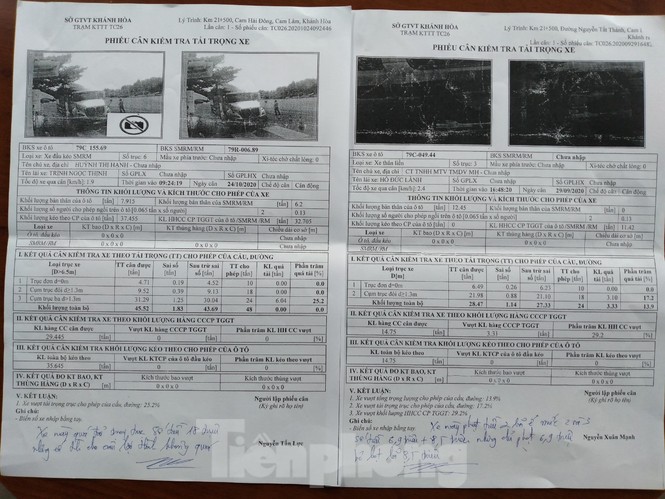 SỞ GTVT KHÁNH HÒA
TRẠM KTTT TC26
Lý Trình: Km 21+500, Cam Hải Đông, Cam Lâm, Khánh Hòa
Lần cân: 1 - Số phiếu cân: TC026.20201024092446
PHIẾU CÂN KIỂM TRA TẢI TRỌNG XE
BKS xe ô tô 79C 155.69 BKS SMRM/RM 79R-006.89
Loại xe: Xe đầu kéo SMRM Số trục: 6 Màu xe phía trước: Chưa nhập Xi-téc chở chất lỏng: 0
Tên chủ xe, địa chỉ HUỲNH THỊ HẠNH - Chưa nhập
Tên lái xe: TRỊNH NGỌC THỊNH Số GPLX Số GPLHX Chưa nhập
Tốc độ xe qua cân [km/h]: 1.9 Thời gian vào 09:24:19 Ngày cân 24/10/2020 Chế độ cân Cân động
THÔNG TIN KHỐI LƯỢNG VÀ KÍCH THƯỚC CHO PHÉP CỦA XE
Khối lượng bản thân của ô tô [tấn] 7.915 Khối lượng bản thân của SMRM /RM [tấn] 6.2
Khối lượng số người cho phép ngồi trên ô tô [0.065 tấn x số người] 2 0.13
Khối lượng kéo theo CP của ô tô [tấn] 37.455 KL HHCC CP TGGT của ô tô /SMRM /RM [tấn] 32.765
Loại xe KT bao (D x R x C) [m] KT thùng hàng (D x R x C) [m] Chiều dài cơ sở [m]
Ô tô, đầu kéo 0 x 0 x 0 0 x 0 x 0 Chưa nhập
SMRM /RM 0 x 0 x 0 0 x 0 x 0 Chưa nhập
I. KẾT QUẢ CÂN KIỂM TRA XE THEO TẢI TRỌNG (TT) CHO PHÉP CỦA CẦU, ĐƯỜNG
Loại trục xe [D=6.5m] TT cân được [tấn] Sai số [tấn] Sau trừ sai số [tấn] TT cho phép [tấn] KL quá tải [tấn] Phần trăm quá tải [%]
1 Trục đơn d=0m 4.71 0.19 4.52 10 0.00 0.0
2 Cụm trục đôi d≥1.3m 9.52 0.39 9.13 18 0.00 0.0
3 Cụm trục ba d>1.3m 31.29 1.25 30.04 24 6.04 25.2
Khối lượng toàn bộ 45.52 1.83 43.69 48 0.00 0.0
II. KẾT QUẢ CÂN KIỂM TRA XE THEO KHỐI LƯỢNG HÀNG CCCP TGGT
KL hàng CC cân được Vượt KL hàng CCCP TGGT Phần trăm KL HH CC vượt
29.445 0 0
III. KẾT QUẢ CÂN KIỂM TRA KHỐI LƯỢNG KÉO THEO CHO PHÉP CỦA Ô TÔ
KL toàn bộ kéo theo Vượt KL KTCP của ô tô đầu kéo Phần trăm KL kéo theo vượt
35.645 0 0
IV. KẾT QUẢ ĐO KT BAO, KT THÙNG HÀNG (D x R x C) Kích thước bao vượt Kích thước thùng vượt
0 x 0 x 0 0 x 0 x 0
V. KẾT LUẬN:
1. Xe vượt tải trọng trục cho phép của cầu đường: 25.2%
Ghi chú:
- Biển số xe nhập bằng tay.
Người lập phiếu cân
(Ký ghi rõ họ tên)
Nguyễn Tấn Lực
SỞ GTVT KHÁNH HÒA
TRẠM KTTT TC26
Lý Trình: Km 21+500, Đường Nguyễn Tất Thành, Cam
PHIẾU CÂN KIỂM TRA TẢI TRỌNG XE
BKS xe ô tô 79C-049.44 BKS SMRM/RM Chưa nhập
Loại xe: Xe thân liền Số trục: 3 Màu xe phía trước: Chưa nhập Xi-téc chở chất lỏng: 0
Tên chủ xe, địa chỉ CT TNHH MTV TMDV MH - Chưa nhập
Tên lái xe: HỒ ĐỨC LÀNH Số GPLX Số GPLHX Chưa nhập
Tốc độ xe qua cân [km/h]: 2.4 Thời gian vào 16:48:20 Ngày cân 29/09/2020 Chế độ cân Cân động
THÔNG TIN KHỐI LƯỢNG VÀ KÍCH THƯỚC CHO PHÉP CỦA XE
Khối lượng bản thân của ô tô [tấn] 12.45 Khối lượng bản thân của SMRM /RM [tấn] 0
Khối lượng số người cho phép ngồi trên ô tô [0.065 tấn x số người] 2 0.13
I. KẾT QUẢ CÂN KIỂM TRA XE THEO TẢI TRỌNG (TT) CHO PHÉP CỦA CẦU, ĐƯỜNG
1 Trục đơn d=0m 6.49 0.26 6.23 10 0.00 0.0
2 Cụm trục đôi d≥1.3m 21.98 0.88 21.10 18 3.10 17.2
Khối lượng toàn bộ 28.47 1.14 27.33 24 3.33 13.9
II. KẾT QUẢ CÂN KIỂM TRA XE THEO KHỐI LƯỢNG HÀNG CCCP TGGT
KL hàng CC cân được Vượt KL hàng CCCP TGGT Phần trăm KL HH CC vượt
14.75 3.33 29.2
III. KẾT QUẢ CÂN KIỂM TRA KHỐI LƯỢNG KÉO THEO CHO PHÉP CỦA Ô TÔ
KL toàn bộ kéo theo Vượt KL KTCP của ô tô đầu kéo Phần trăm KL kéo theo vượt
14.75 0 0
IV. KẾT QUẢ ĐO KT BAO, KT THÙNG HÀNG (D x R x C) Kích thước bao vượt Kích thước thùng vượt
0 x 0 x 0 0 x 0 x 0
V. KẾT LUẬN:
1. Xe vượt tổng trọng lượng cho phép của cầu đường: 13.9%
2. Xe vượt tải trọng trục cho phép của cầu đường: 17.2%
3. Xe vượt khối lượng HHCC CP TGGT: 29.2%
Ghi chú:
- Biển số xe nhập bằng tay.
Người lập phiếu cân
(Ký ghi rõ họ tên)
Nguyễn Xuân Mạnh
Tienphong